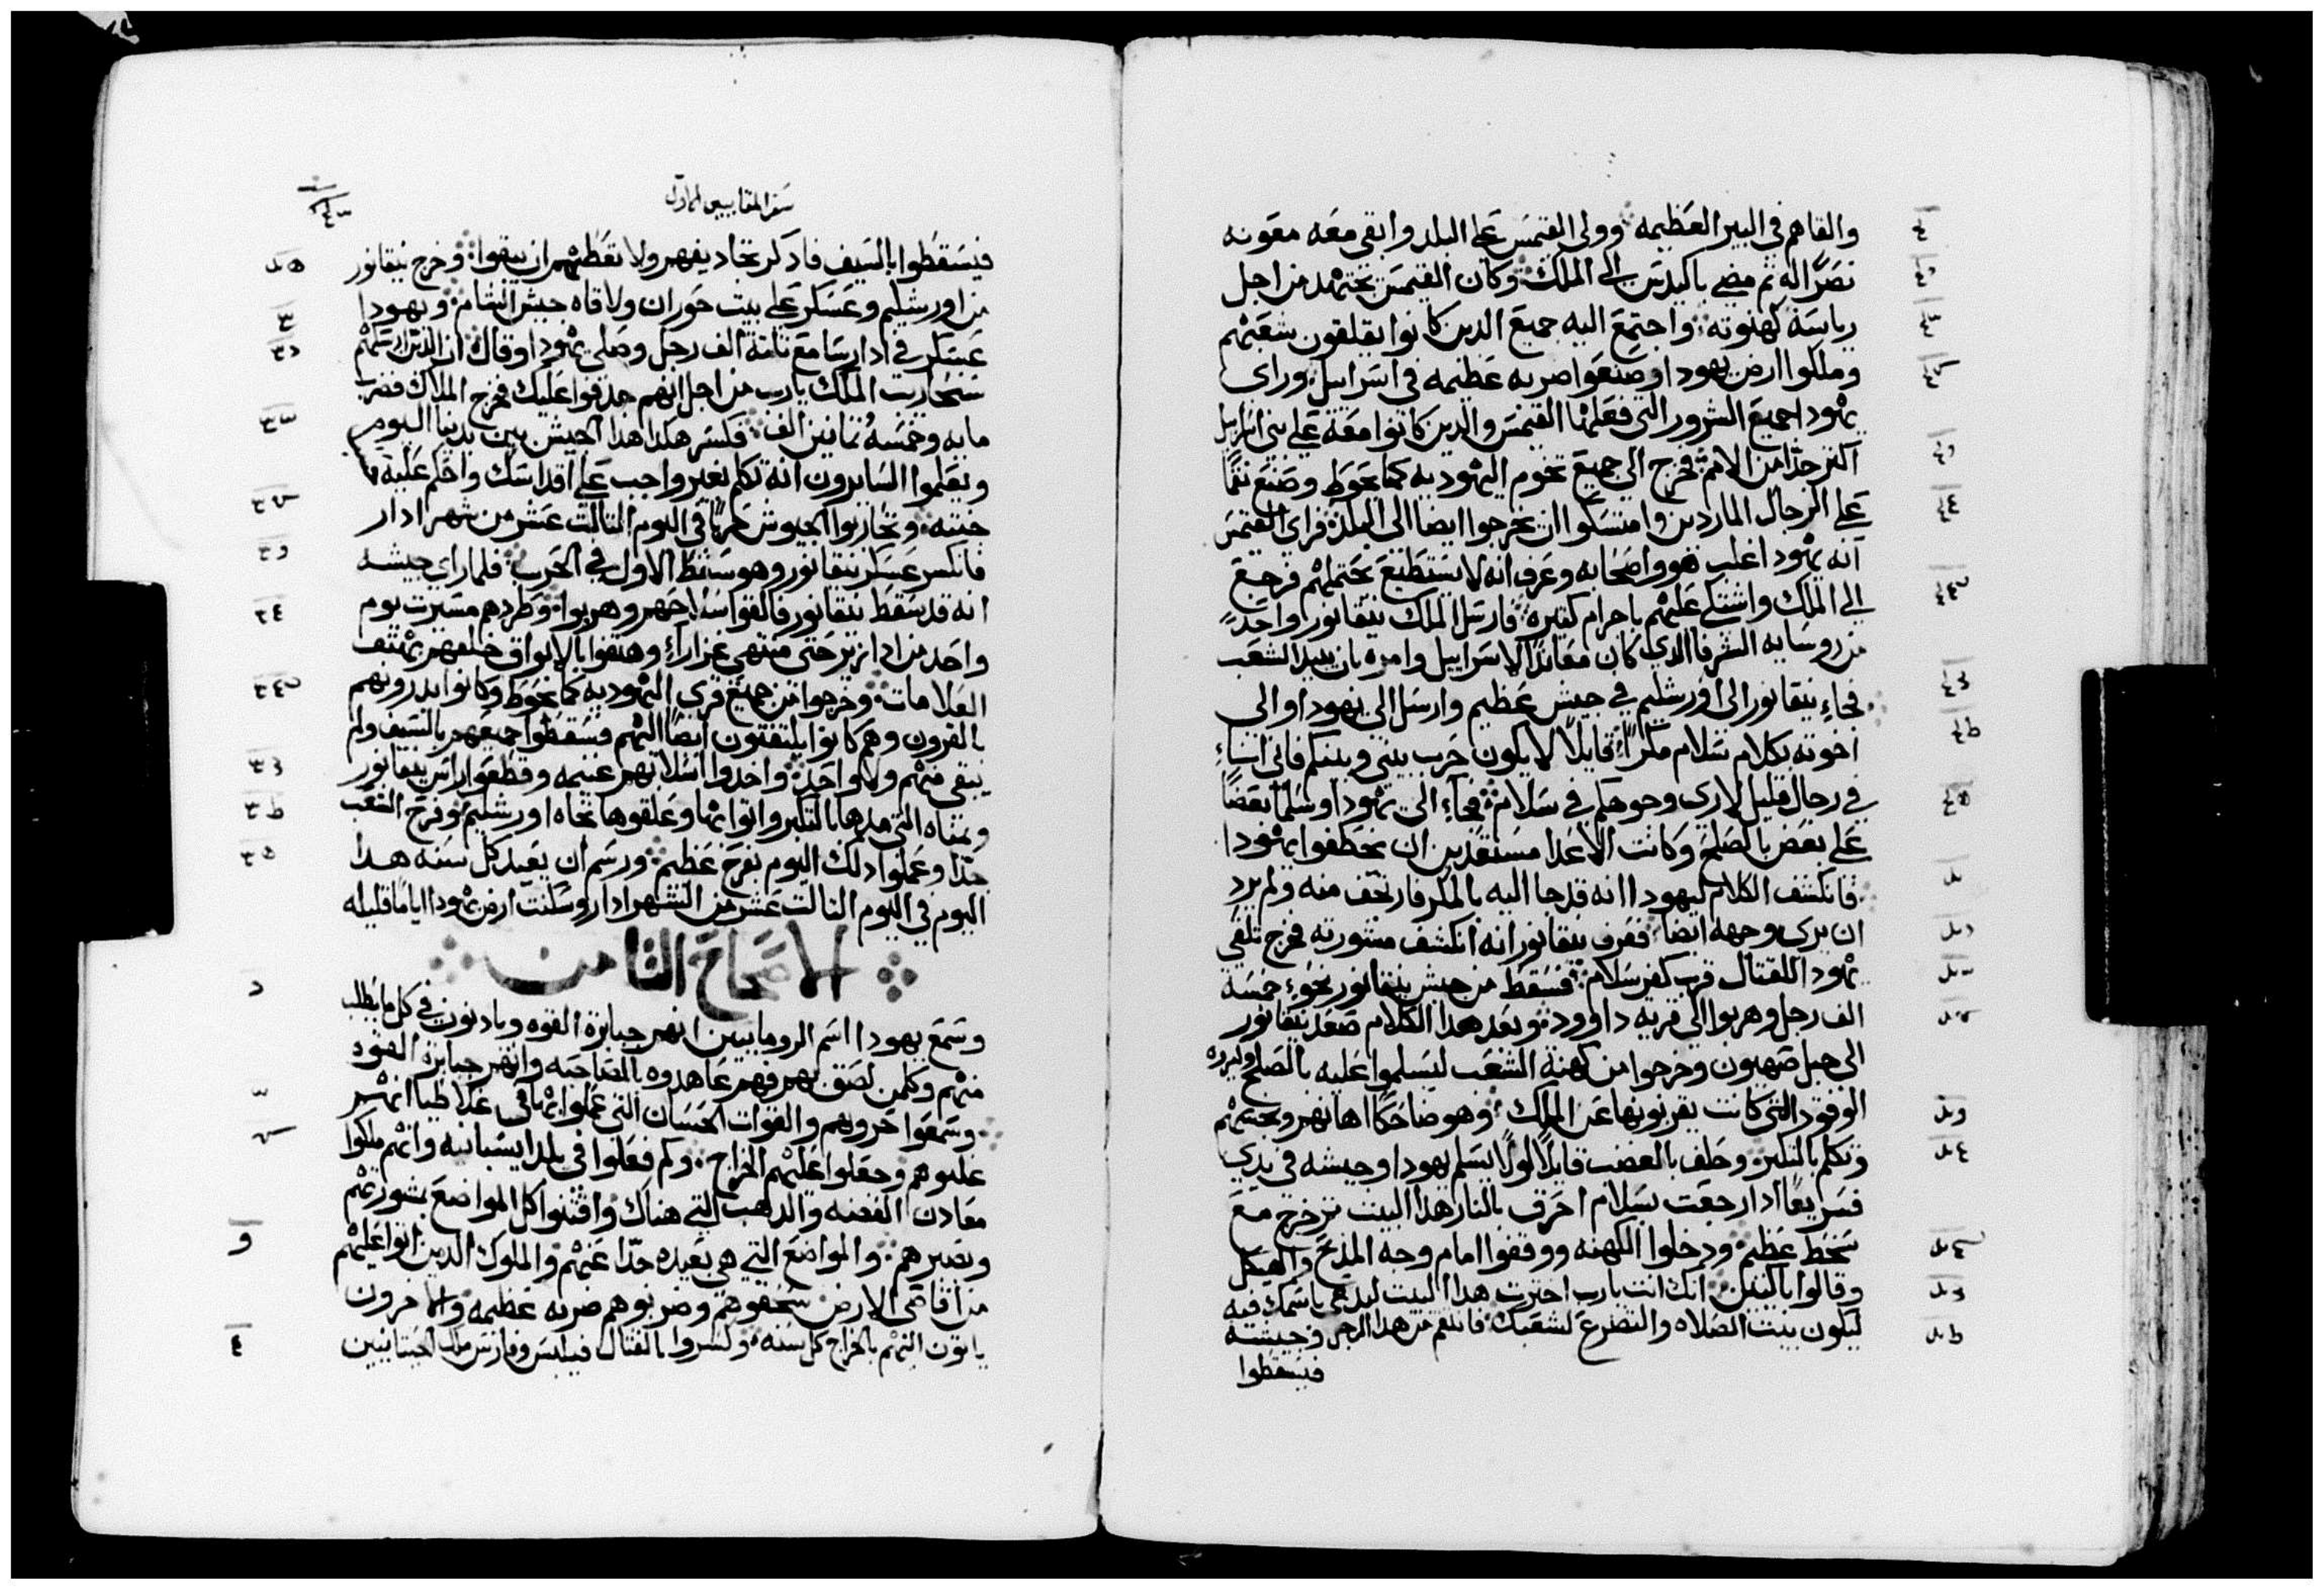 والقاهم في البير العظيمه وولى القتمس على البلد وابقى معه معونه
نصرًا له تم مضي باكيدس الى الملك وكان القتمس يجتهد من اجل
رياسة كهنوته واجتمع اليه جميع الدين كانوا يقلقون شعبهم
وملكوا ارض يهودا وصنعوا ضربه عظيمه في اسراييل وراى
يهودا جميع الشرور التي فعلها القتمس والدين كانوا معه على بني اسراييل
اكتر جدًا من الامم فخرج الى جميع تخوم اليهوديه كما يحوط وصنع نقمًا
على الرجال الماردين وامتسكوا ان يخرجوا ايضا الى البلده فراى القتمس
انه يهودا غلب هو واصحابه وعرف انه لا يستطيع يحتملهم فرجع
الى الملك واشتكى عليهم باجرام كتيره فارسل الملك نيقانور واحدًا
من روسايه الشرفا الدي كان معاندًا لاسراييل وامره بان يبيد الشعب
فجاء نيقانور الى اورشليم في جيش عظيم وارسل الى يهودا والى
اخوته بكلام سلام مكرًا قايلًا لا يكون حرب بيني وبينكم فاني اتياء
في رجال قليل لارى وجوهكم في سلام فجاء الى يهودا وسلما بعضًا
على بعض بالصلح وكانت الاعدا مستعدين ان يخطفوا يهودا
فانكشف الكلام ليهودا انه قد جا اليه بالمكر فارتجف منه ولم يرد
ان يرى وجهه ايضا فعرف نيقانور انه انكشف مشورته فخرج تلقى
يهودا للقتال قرب كفر سلام فسقط من جيش نيقانور نحوء خمسة
الف رجل وهربوا الى قريه داوود وبعد هدا الكلام صعد نيقانور
الى جبل صهيون وخرجوا من كهنة الشعب ليسلموا عليه بالصلح وليروه
الوقود التي كانت يقربونها عن الملك وهو ضاحكًا اهانهم ونجسهم
وتكلم بالتكبر وحلف بالغضب قايلًا لولا يسلم يهودا وجيشه في يدي
فسريعًا ادا رجعت بسلام احرق بالنار هدا البيت تم خرج مع
سخط عظيم ودخلوا الكهنه ووقفوا امام وجه المدبح والهيكل
وقالوا بالبكا انك انت يارب اخترت هدا البيت ليدعى باسمك فيه
ليكون بيت الصلاه والتضرع لشعبك فانتقم من هدا الرجل وجيشه
فيسقطوا
سفر المقابيين الاول
فيسقطوا بالسيف فادكر تجاديفهم ولا تعطيهم ان يبقوا وخرج نيقانور
من اورشليم وعسكر على بيت حوران ولاقاه جيش الشام ويهودا
عسكر في ادارسا مع تلتة الف رجل وصلى يهودا وقال ان الدين ارسلهم
سنحاريب الملك يارب من اجل انهم جدفوا عليك فخرج الملاك فضرب
مايه وخمسه وتمانين الف فكسر هكدا هدا الجيش بين يدينا اليوم
ويعلموا السايرون انه تكلم بغير واجب على اقداسك واحكم عليه
خبته وتحاربوا الجيوش حربًا في اليوم التالت عشر من شهر ادار
فانكسر عسكر نيقانور وهو سقط الاول في الحرب فلما راى جيشه
انه قد سقط نيقانور فالقوا سلاحهم وهربوا وطردهم مسيرت يوم
واحد من ادازير حتى منتهى غزاراء وهتفوا بالابواق خلفهم بهتف
العلامات وخرجوا من جميع قرى اليهوديه كما يحوط وكانوا يدرونهم
بالقرون وهم كانوا يلتفتون ايضًا اليهم فسقطوا جميعهم بالسيف ولم
يبقى منهم ولا واحد واخدوا اسلابهم غنيمه وقطعوا راس نيقانور
ويمناه التي مدها بالتكبر واتوا بها وعلقوها تجاه اورشليم وفرح الشعب
جدًا وعملوا دلك اليوم بفرح عظيم ورسم ان يعيد كل سنه هدا
اليوم في اليوم التالت عشر من الشهر ادار وسكنت ارض يهودا ايامًا قليله
الاصحاح التامن
وسمع يهودا اسم الرومايين انهم جبابرة القوه ويادنون في كل ما يطلب
منهم وكلمن لصق بهم فهم عاهدوه بالمصاحبه وانهم جبابرة القوه
وسمعوا حروبهم والقوات الحسان التي عملوا بها في غلاطيا انهم
غلبوهم وجعلوا عليهم الخراج وكم فعلوا في بلد ايسبانيه وانهم ملكوا
معادن الفضه والدهب التي هناك واقتنوا كل المواضع بشورتهم
وبصبرهم والمواضع التي هي بعيده جدًا عنهم والملوك الدين اتوا عليهم
من اقاصى الارض سحقوهم وضربوهم ضربه عظيمه والاخرون
ياتون اليهم بالخراج كل سنه وكسروا بالقتال فيلبس وفارس ملك الجيتانيين